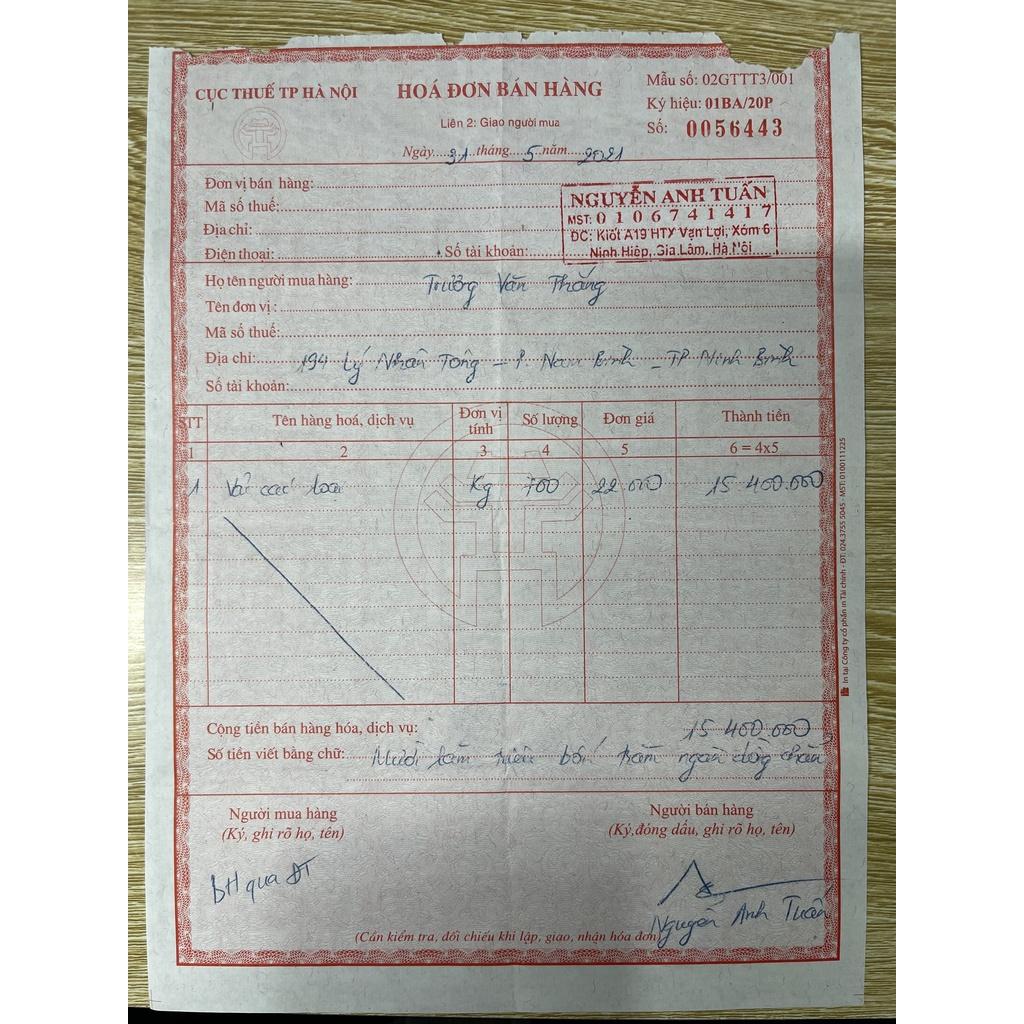 CỤC THUẾ TP HÀ NỘI
HOÁ ĐƠN BÁN HÀNG
Liên 2: Giao người mua
Ngày 31 tháng 5 năm 2021
Mẫu số: 02GTTT3/001
Ký hiệu: 01BA/20P
Số: 0056443
Đơn vị bán hàng:
Mã số thuế:
Địa chỉ:
Điện thoại: Số tài khoản:
NGUYỄN ANH TUẤN
MST: 0106741417
ĐC: Kiốt A19 HTX Vạn Lợi, Xóm 6
Ninh Hiệp, Gia Lâm, Hà Nội
Họ tên người mua hàng: Trương Văn Thắng
Tên đơn vị:
Mã số thuế:
Địa chỉ: 194 Lý Nhân Tông - P. Nam Bình - TP Ninh Bình
Số tài khoản:
STT Tên hàng hoá, dịch vụ Đơn vị tính Số lượng Đơn giá Thành tiền
1 2 3 4 5 6 = 4x5
1 Vải các loại Kg 700 22.000 15.400.000
Cộng tiền bán hàng hóa, dịch vụ: 15.400.000
Số tiền viết bằng chữ: Mười lăm triệu bốn trăm ngàn đồng chẵn
Người mua hàng
(Ký, ghi rõ họ, tên)
Người bán hàng
(Ký,đóng dấu, ghi rõ họ, tên)
BH qua ĐT
Nguyễn Anh Tuấn
(Cần kiểm tra, đối chiếu khi lập, giao, nhận hóa đơn)
In tại Công ty cổ phần in Tài chính - ĐT: 024.3755 5045 - MST: 0100111225